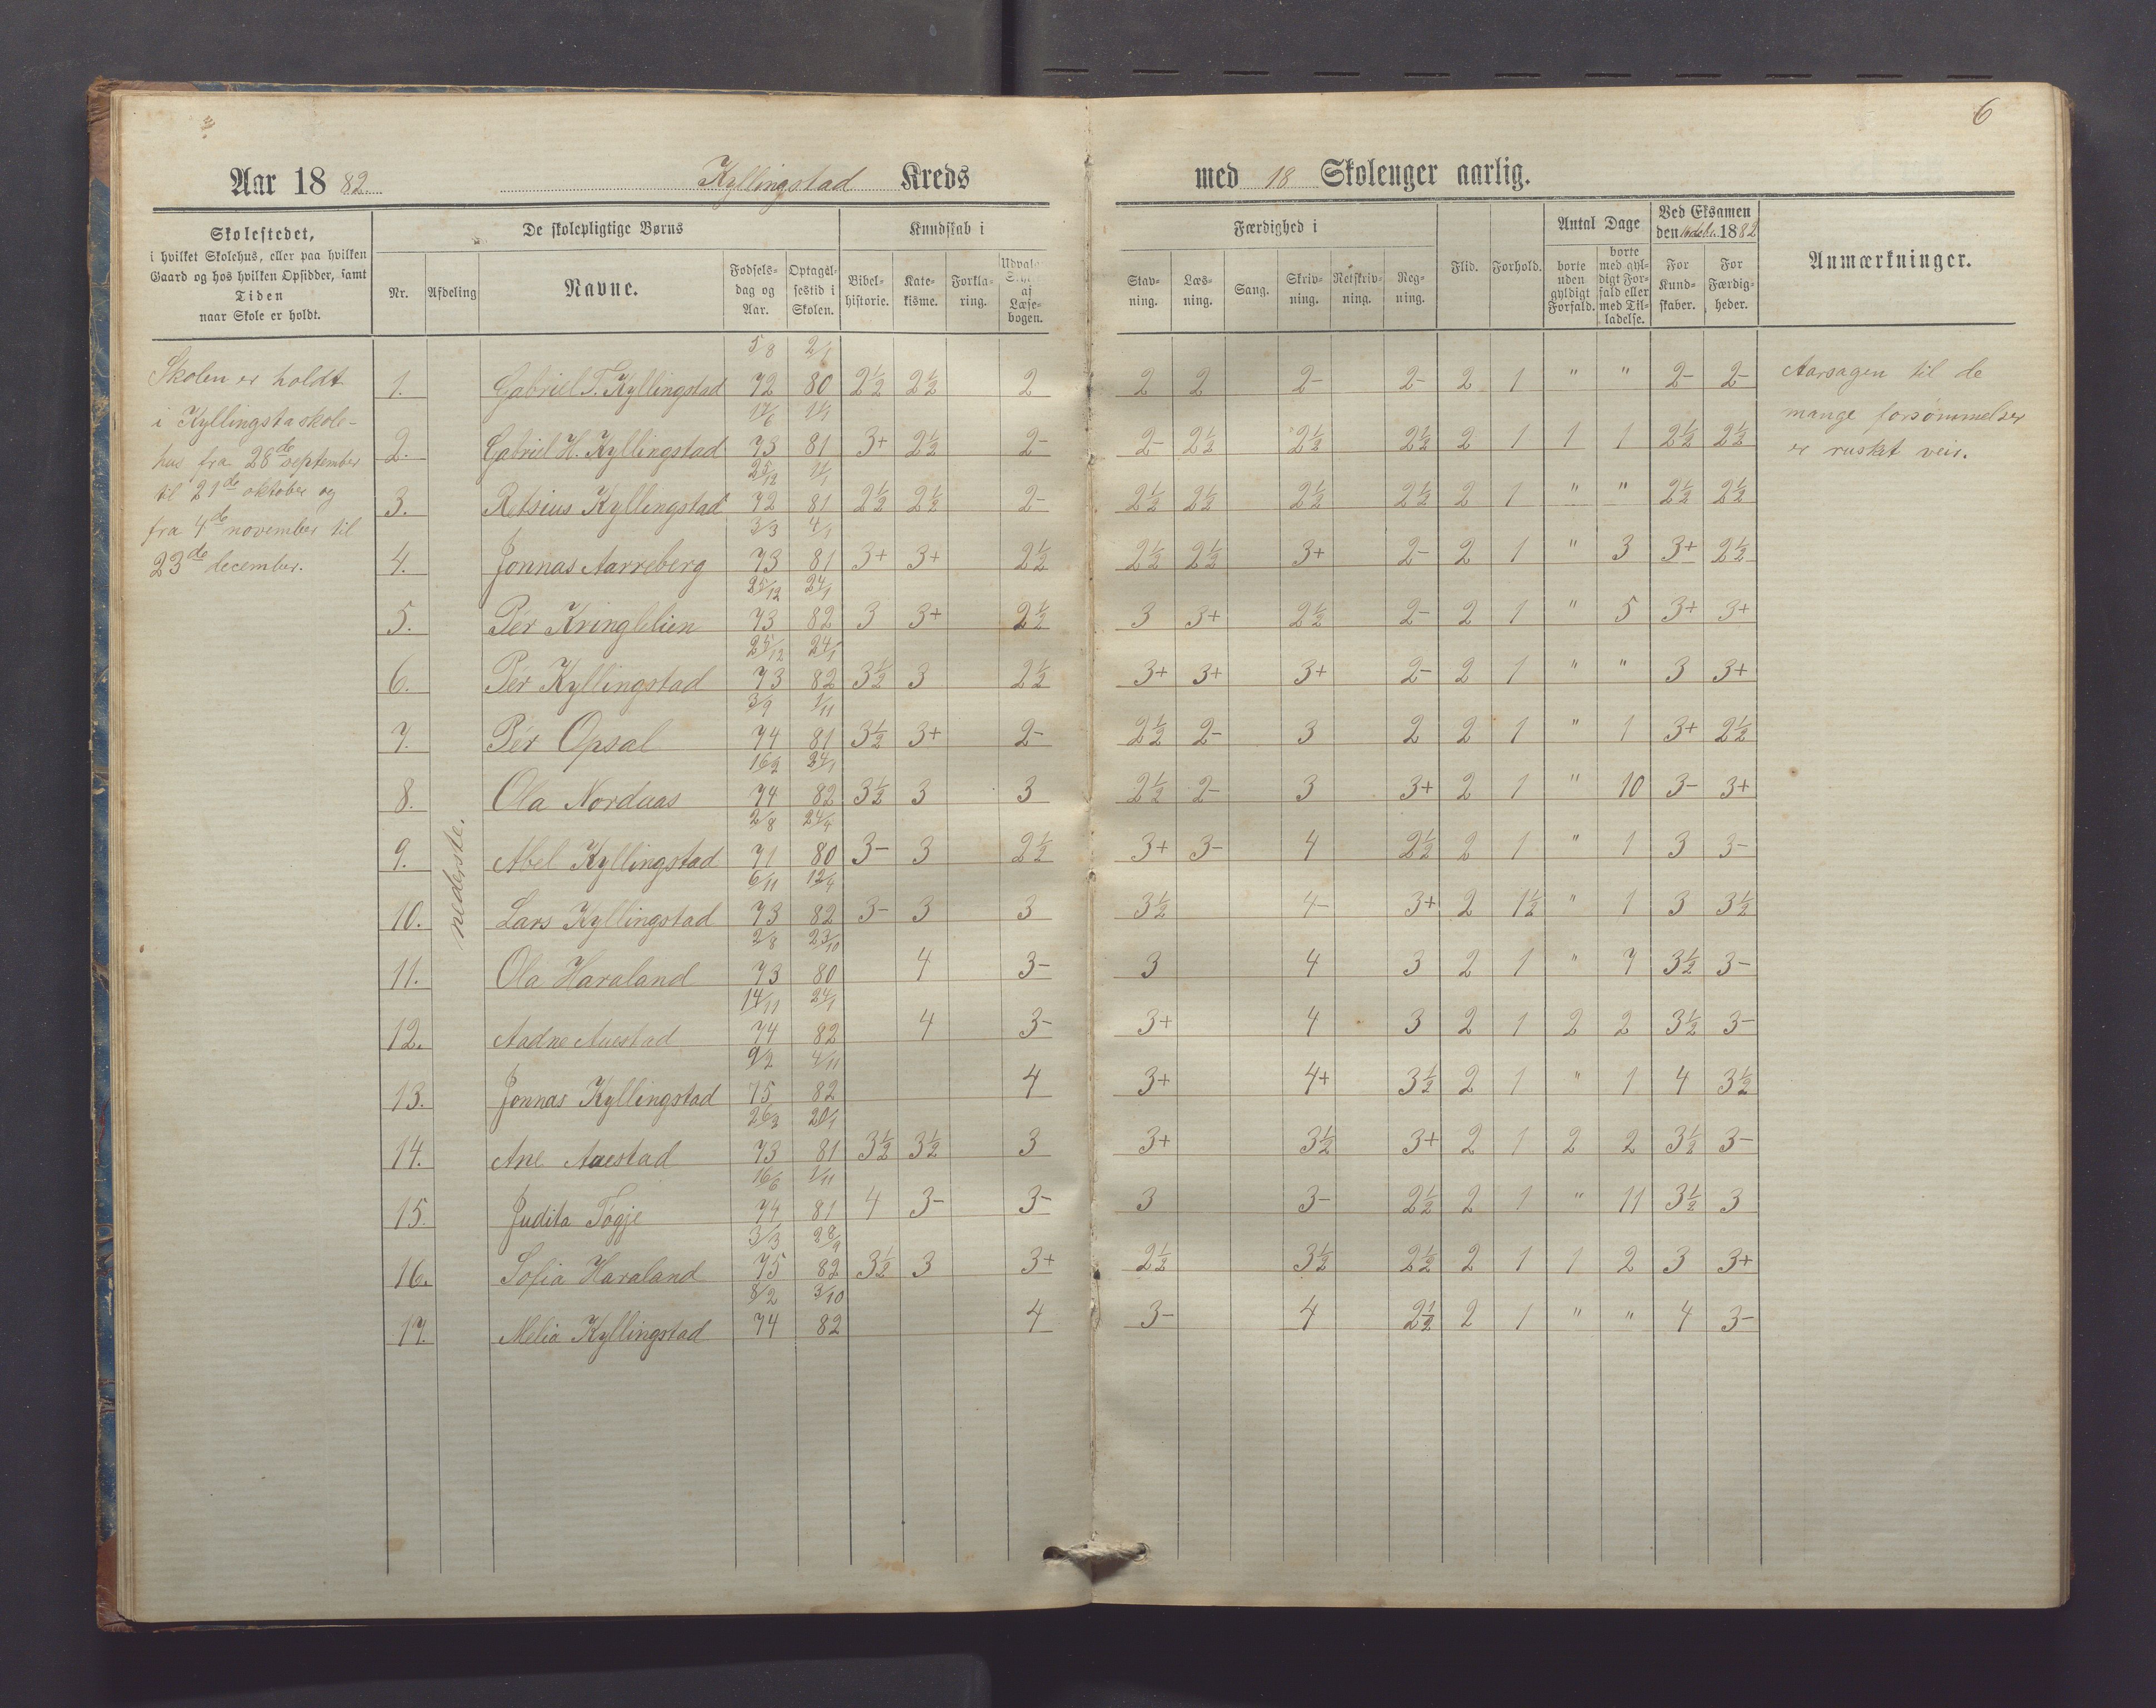 6
Aar 1882. Kyllingstad Kreds med 18 Skolenger aarlig.
Skolestedet,
i hvilket Skolehus, eller paa hvilken
Gaard og hos hvilken Opsidder, samt
Tiden
naar Skole er holdt.
De skolepligtige Børns
Nr. Afdeling Navne. Fødsels-dag og Aar. Optagelsestid i Skolen.
Kundskab i
Bibel-historie. Kate-kisme. Forkla-ring. Læse-bogen.
Færdighed i
Stav-ning. Læs-ning. Sang. Skriv-ning. Retskriv-ning. Reg-ning.
Flid. Forhold.
Antal Dage
borte uden gyldigt Forfald. borte med gyl-digt For-fald eller med Til-ladelse.
Ved Eksamen
den 1882
For Kund-skaber. For Færdig-heder.
Anmærkninger.
Skolen er holdt
i Kyllingsta skole-
hus fra 28de september
til 21de oktober og
fra 4de november til
23de december.
nederste.
1. Gabriel T. Kyllingstad 5/8 72 2/1 80 2½ 2½ 2 2 2 2- 2- 2 1 " " 2- 2-
2. Gabriel H. Kyllingstad 17/6 73 81 3+ 2½ 2- 2- 2½ 2½ 2½ 2 1 1 1 2½ 2½
3. Retsius Kyllingstad 25/12 72 81 2½ 2½ 2- 2½ 2½ 2½ 2½ 2 1 " " 2½ 2½
4. Jonnas Aarreberg 3/3 73 4/1 81 3+ 3+ 2½ 2½ 2½ 3+ 2- 2 1 " 3 3+ 2½
5. Pér Kringlelien 25/12 73 24/1 82 3 3+ 2½ 3 3+ 2½ 2- 2 1 " 5 3+ 3+
6. Pér Kyllingstad 25/12 73 24/1 82 3½ 3 2½ 3+ 3+ 3+ 2- 2 1 " " 3 3+
7. Pér Opsal 3/9 74 1/11 81 3½ 3+ 2- 2½ 2- 3 2 2 1 " 1 3+ 2½
8. Ola Nordaas 16/2 74 24/1 82 3½ 3 3 2½ 2- 3 3+ 2 1 " 10 3- 3+
9. Abel Kyllingstad 2/8 71 24/4 80 3- 3 2½ 3+ 3- 4 2½ 2 1 " 1 3 3-
10. Lars Kyllingstad 6/11 73 12/4 82 3- 3 3 3½ 4- 3+ 2 1½ " 1 3 3½
11. Ola Haraland 2/8 73 23/10 80 4 3- 3 4 3 2 1 " 7 3½ 3-
12. Aadne Auestad 14/11 74 24/1 82 4 3- 3+ 4 3 2 1 2 2 3½ 3-
13. Jonnas Kyllingstad 9/2 75 4/11 82 4 3+ 4+ 3½ 2 1 " 1 4 3½
14. Ane Auestad 26/3 73 20/1 81 3½ 3½ 3 3+ 3½ 3+ 2 1 2 2 3½ 3-
15. Judita Togje 16/6 74 1/11 81 4 3- 3- 3 3- 2½ 2 1 " 11 3½ 3
16. Sofia Haraland 3/3 75 28/9 82 3½ 3 3+ 2½ 3½ 2½ 2 1 1 2 3 3+
17. Melia Kyllingstad 8/2 74 3/10 82 4 3- 4 2½ 2 1 " " 4 3-
Aarsagen til de
mange forsømmelser
er rusket veir.